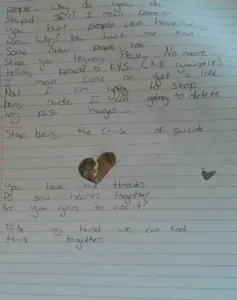 people - why do you do
Stupid shit? I mean come on
you hurt people who have feelings
You Why? You hurt me and
Some other people too
Stop you trauma Please, No more
telling people to KYS (kill yourself)
I mean come on get a life
Now I am going to stop
being rude I am going to delete
my past images
Stop being the cause of suicide
you have the threads
to sew hearts together
Are you going to use it?
Take my hand we can end
this together